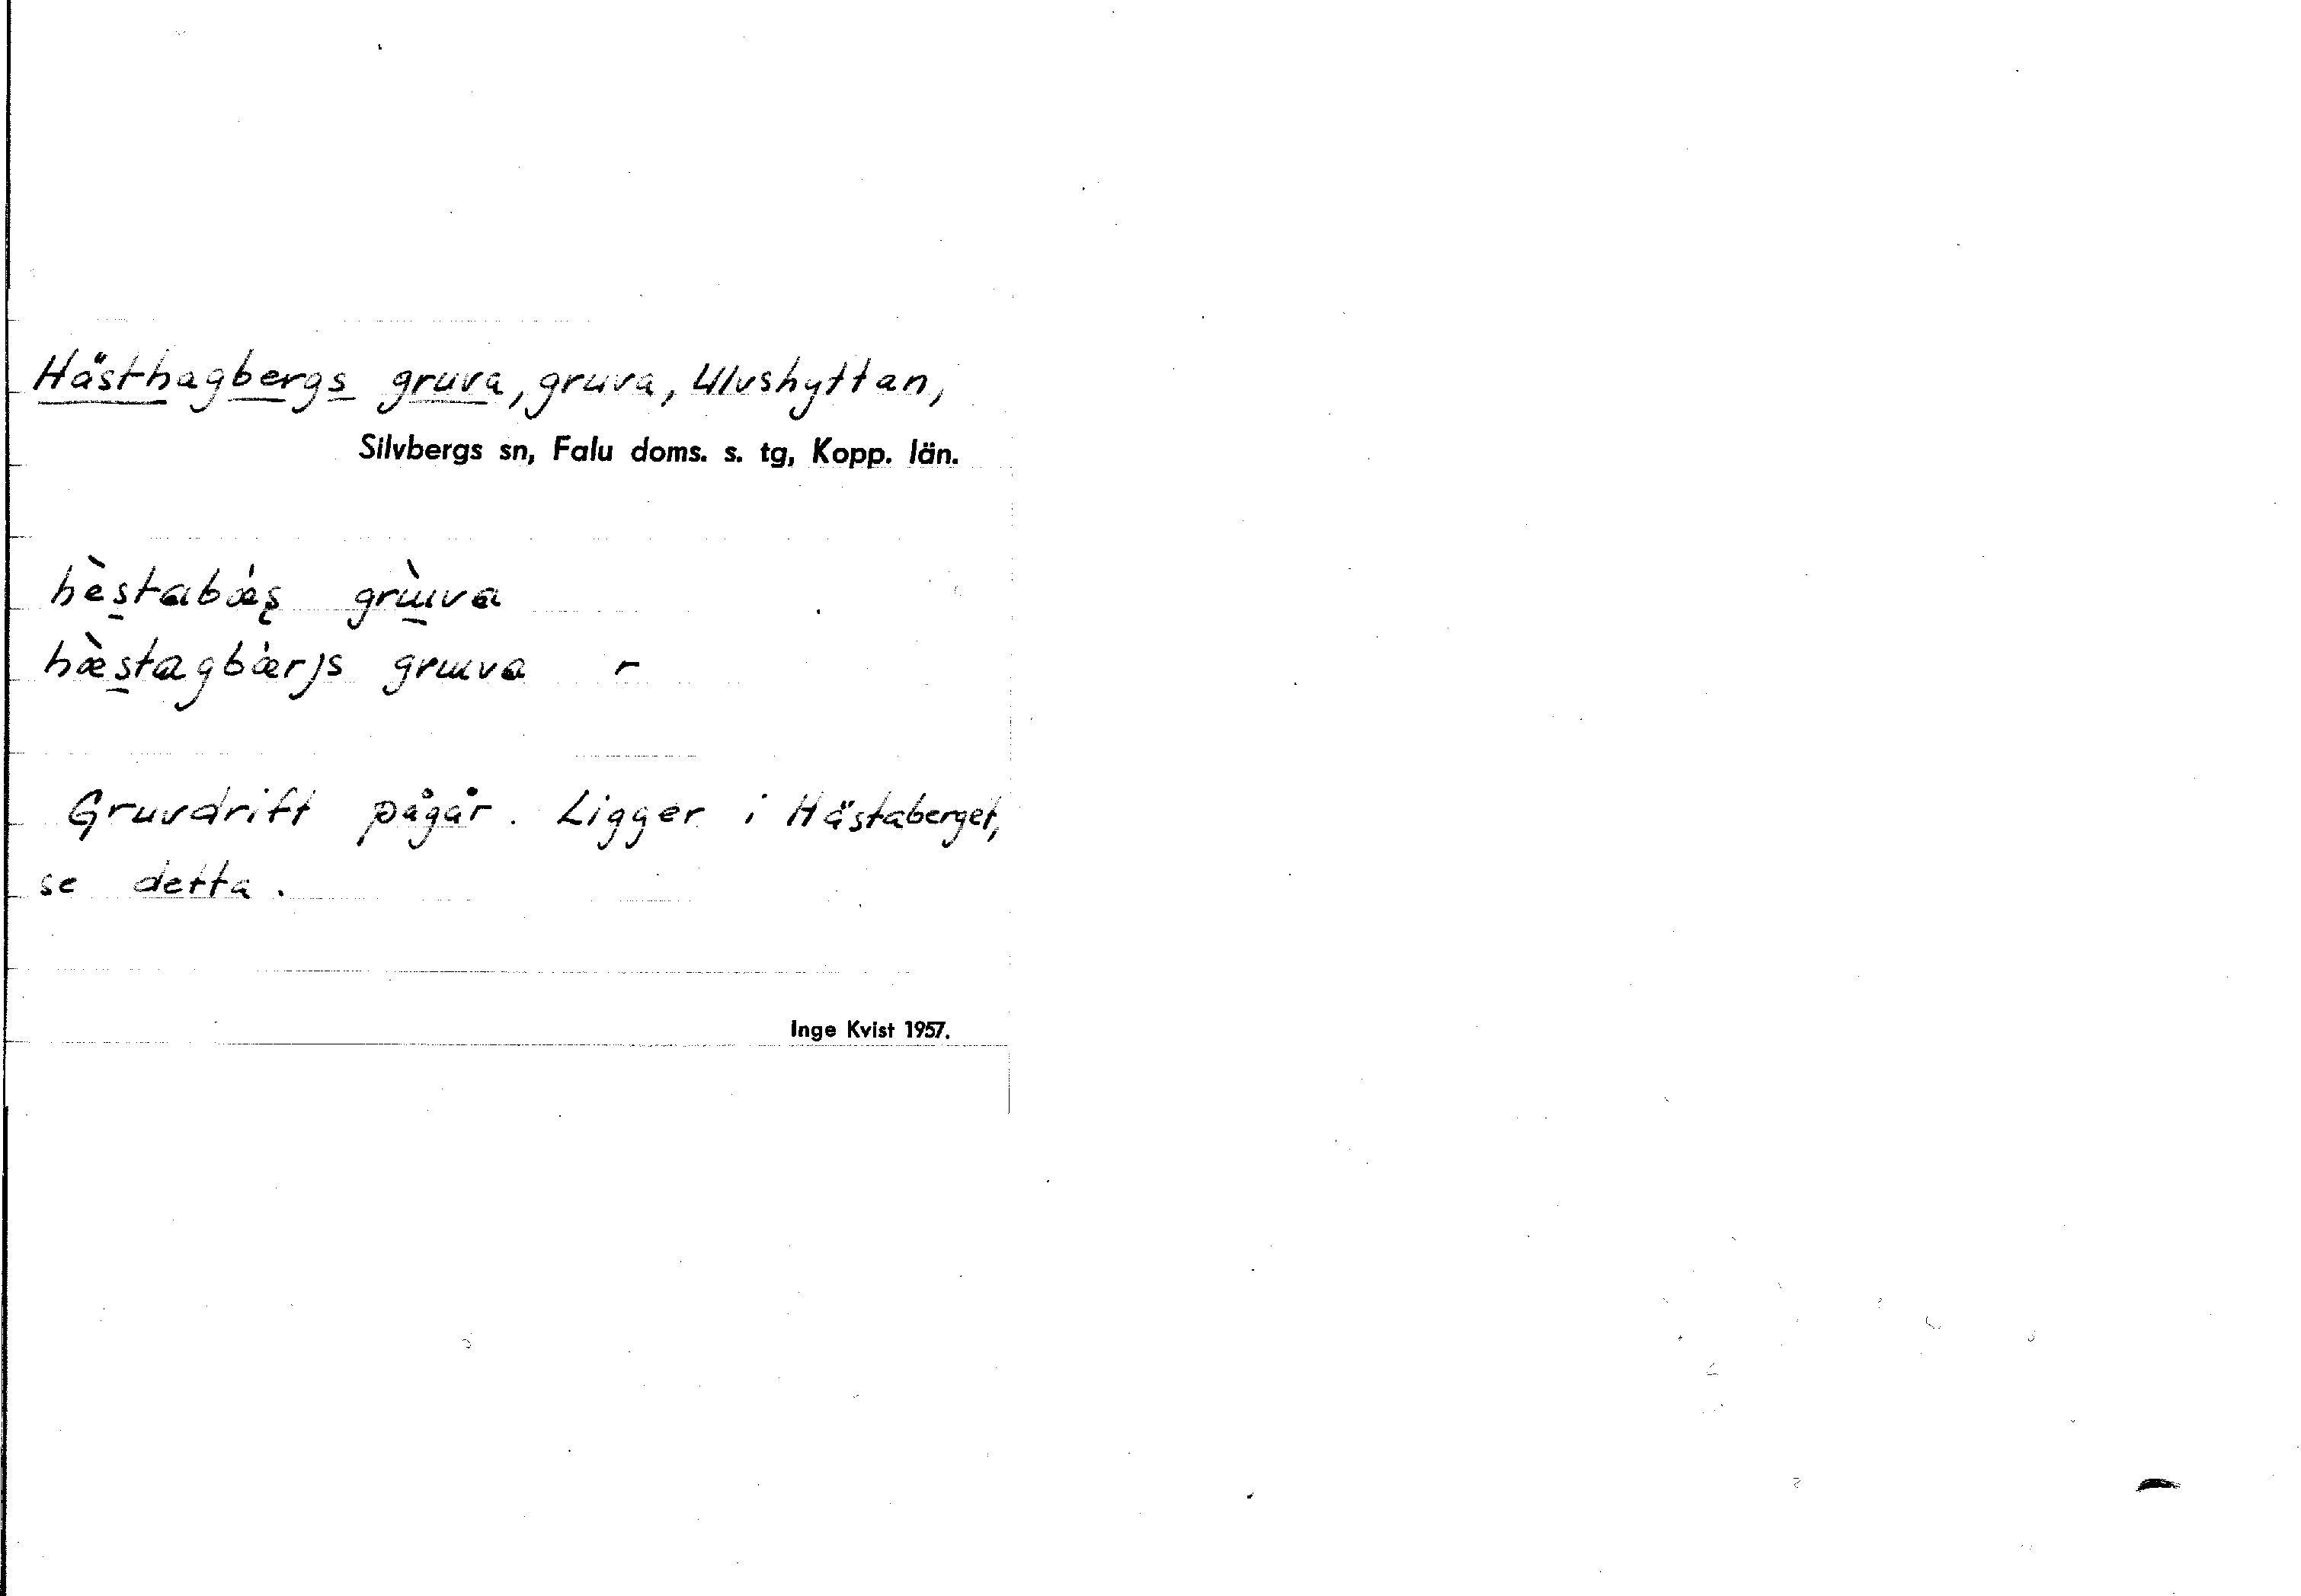 Hästhagbergs gruva, gruva, Ulvshyttan,
Silvbergs sn, Falu doms. s. tg, Kopp. län.
hèstabæ̀ʂ grɯ̀va
hæ̀stagbærjs grɯva r
Gruvdrift pågår. Ligger i Hästaberget,
se detta.
Inge Kvist 1957.